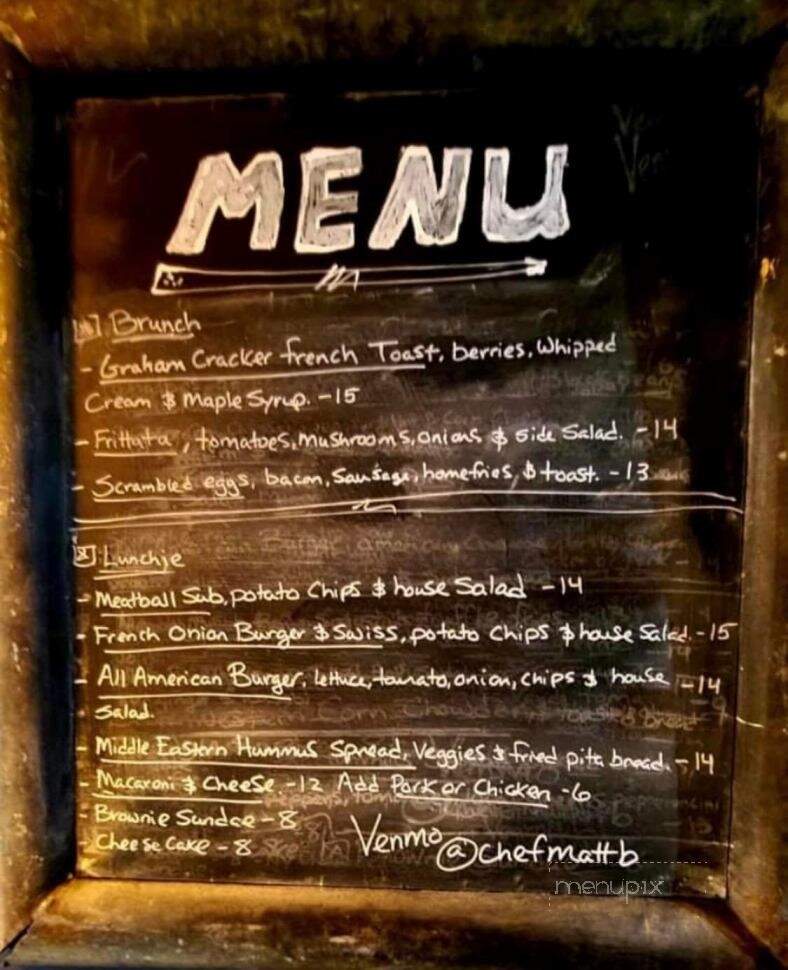 MENU
Brunch
- Graham Cracker french Toast, berries, Whipped
Cream & Maple Syrup. -15
- Frittata, tomatoes, mushrooms, onions & side Salad. -14
- Scrambled eggs, bacon, Sausage, homefries, & toast. -13
Lunchje
- Meatball Sub, potato Chips & house Salad -14
- French Onion Burger & Swiss, potato Chips & house Salad. -15
- All American Burger, lettuce, tomato, onion, chips & house -14
- Salad.
- Middle Eastern Hummus Spread, Veggies & fried pita bread. -14
- Macaroni & Cheese. -12 Add Pork or Chicken -6
- Brownie Sundae - 8
- Cheese Cake - 8
Venmo @chefmattb
menupix